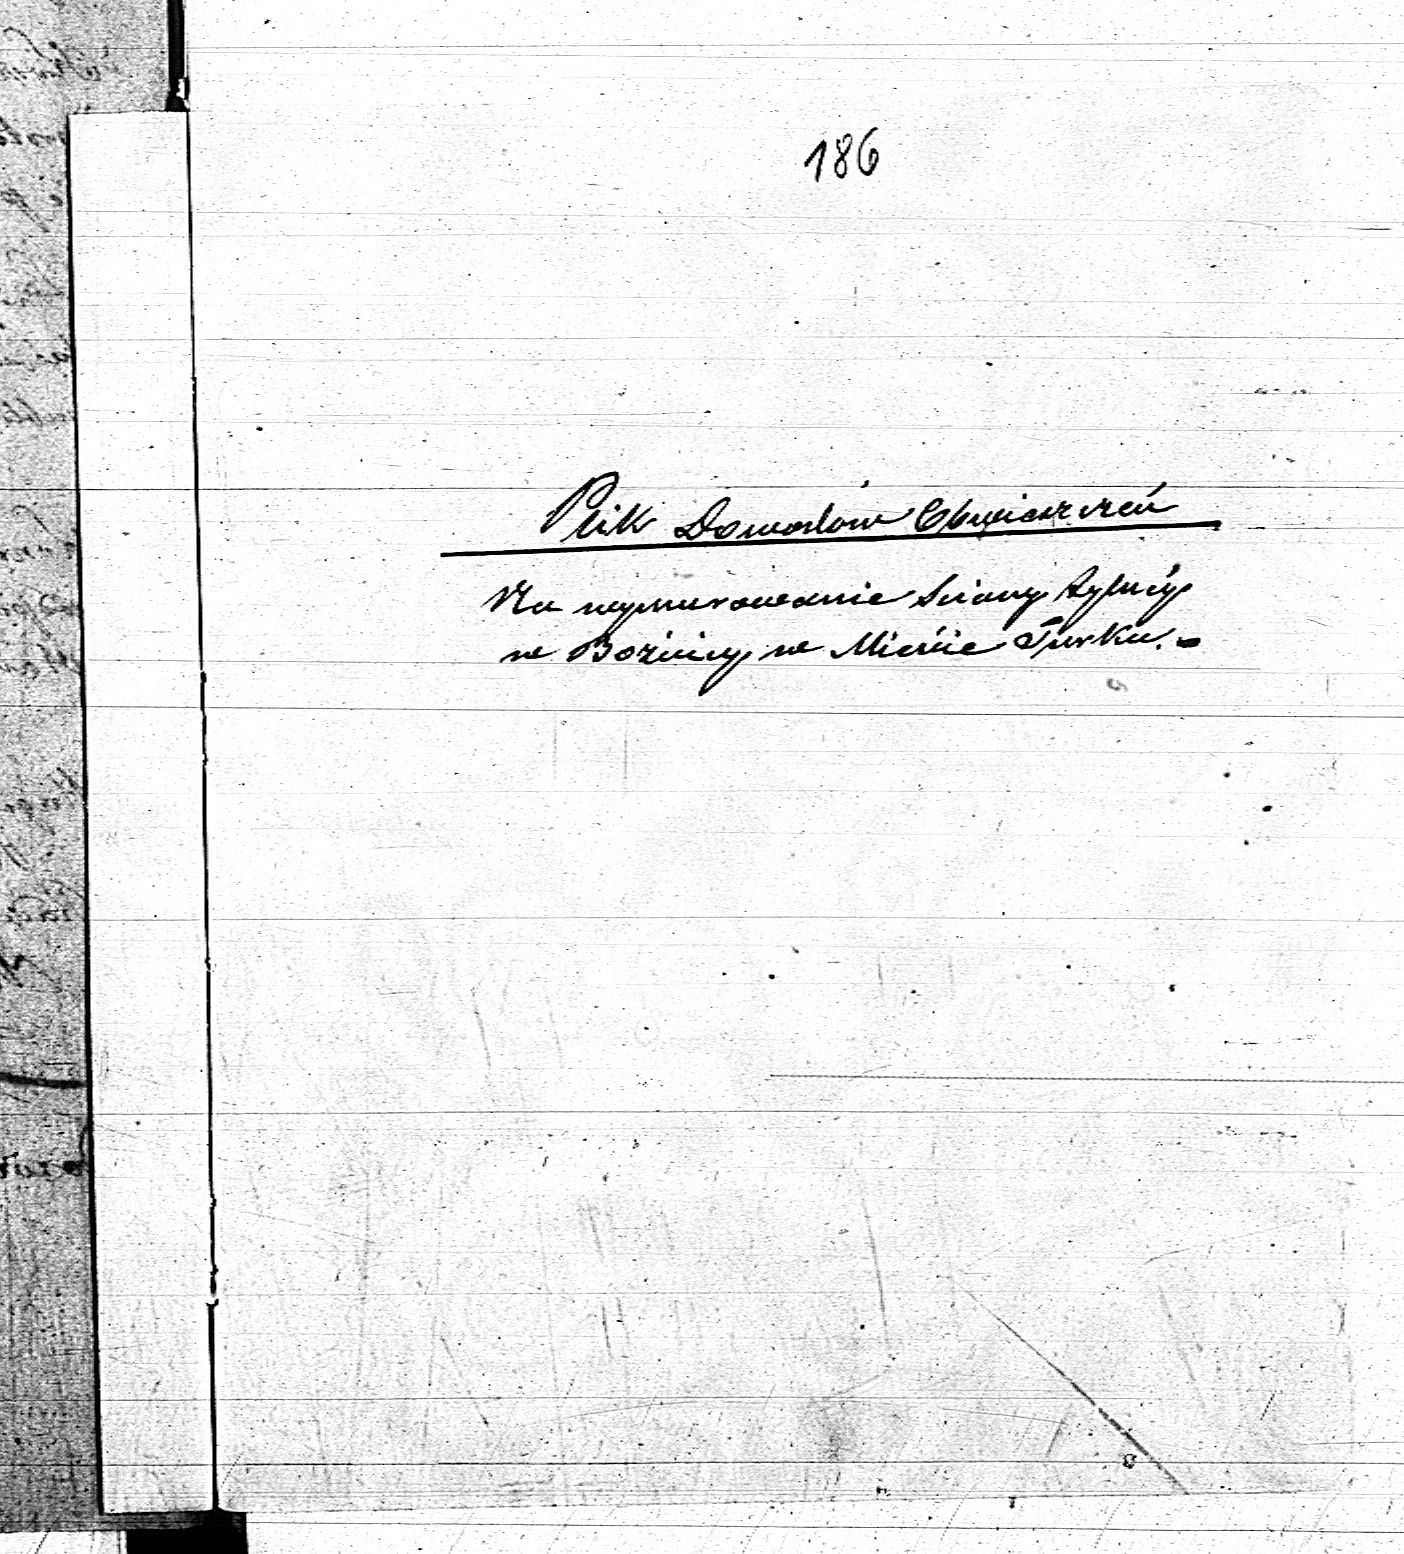 186
Plik Dowodów Obwieszczeń
Na wymurowanie Sciany Tylnéy
w Bożnicy w Mieście Turku.